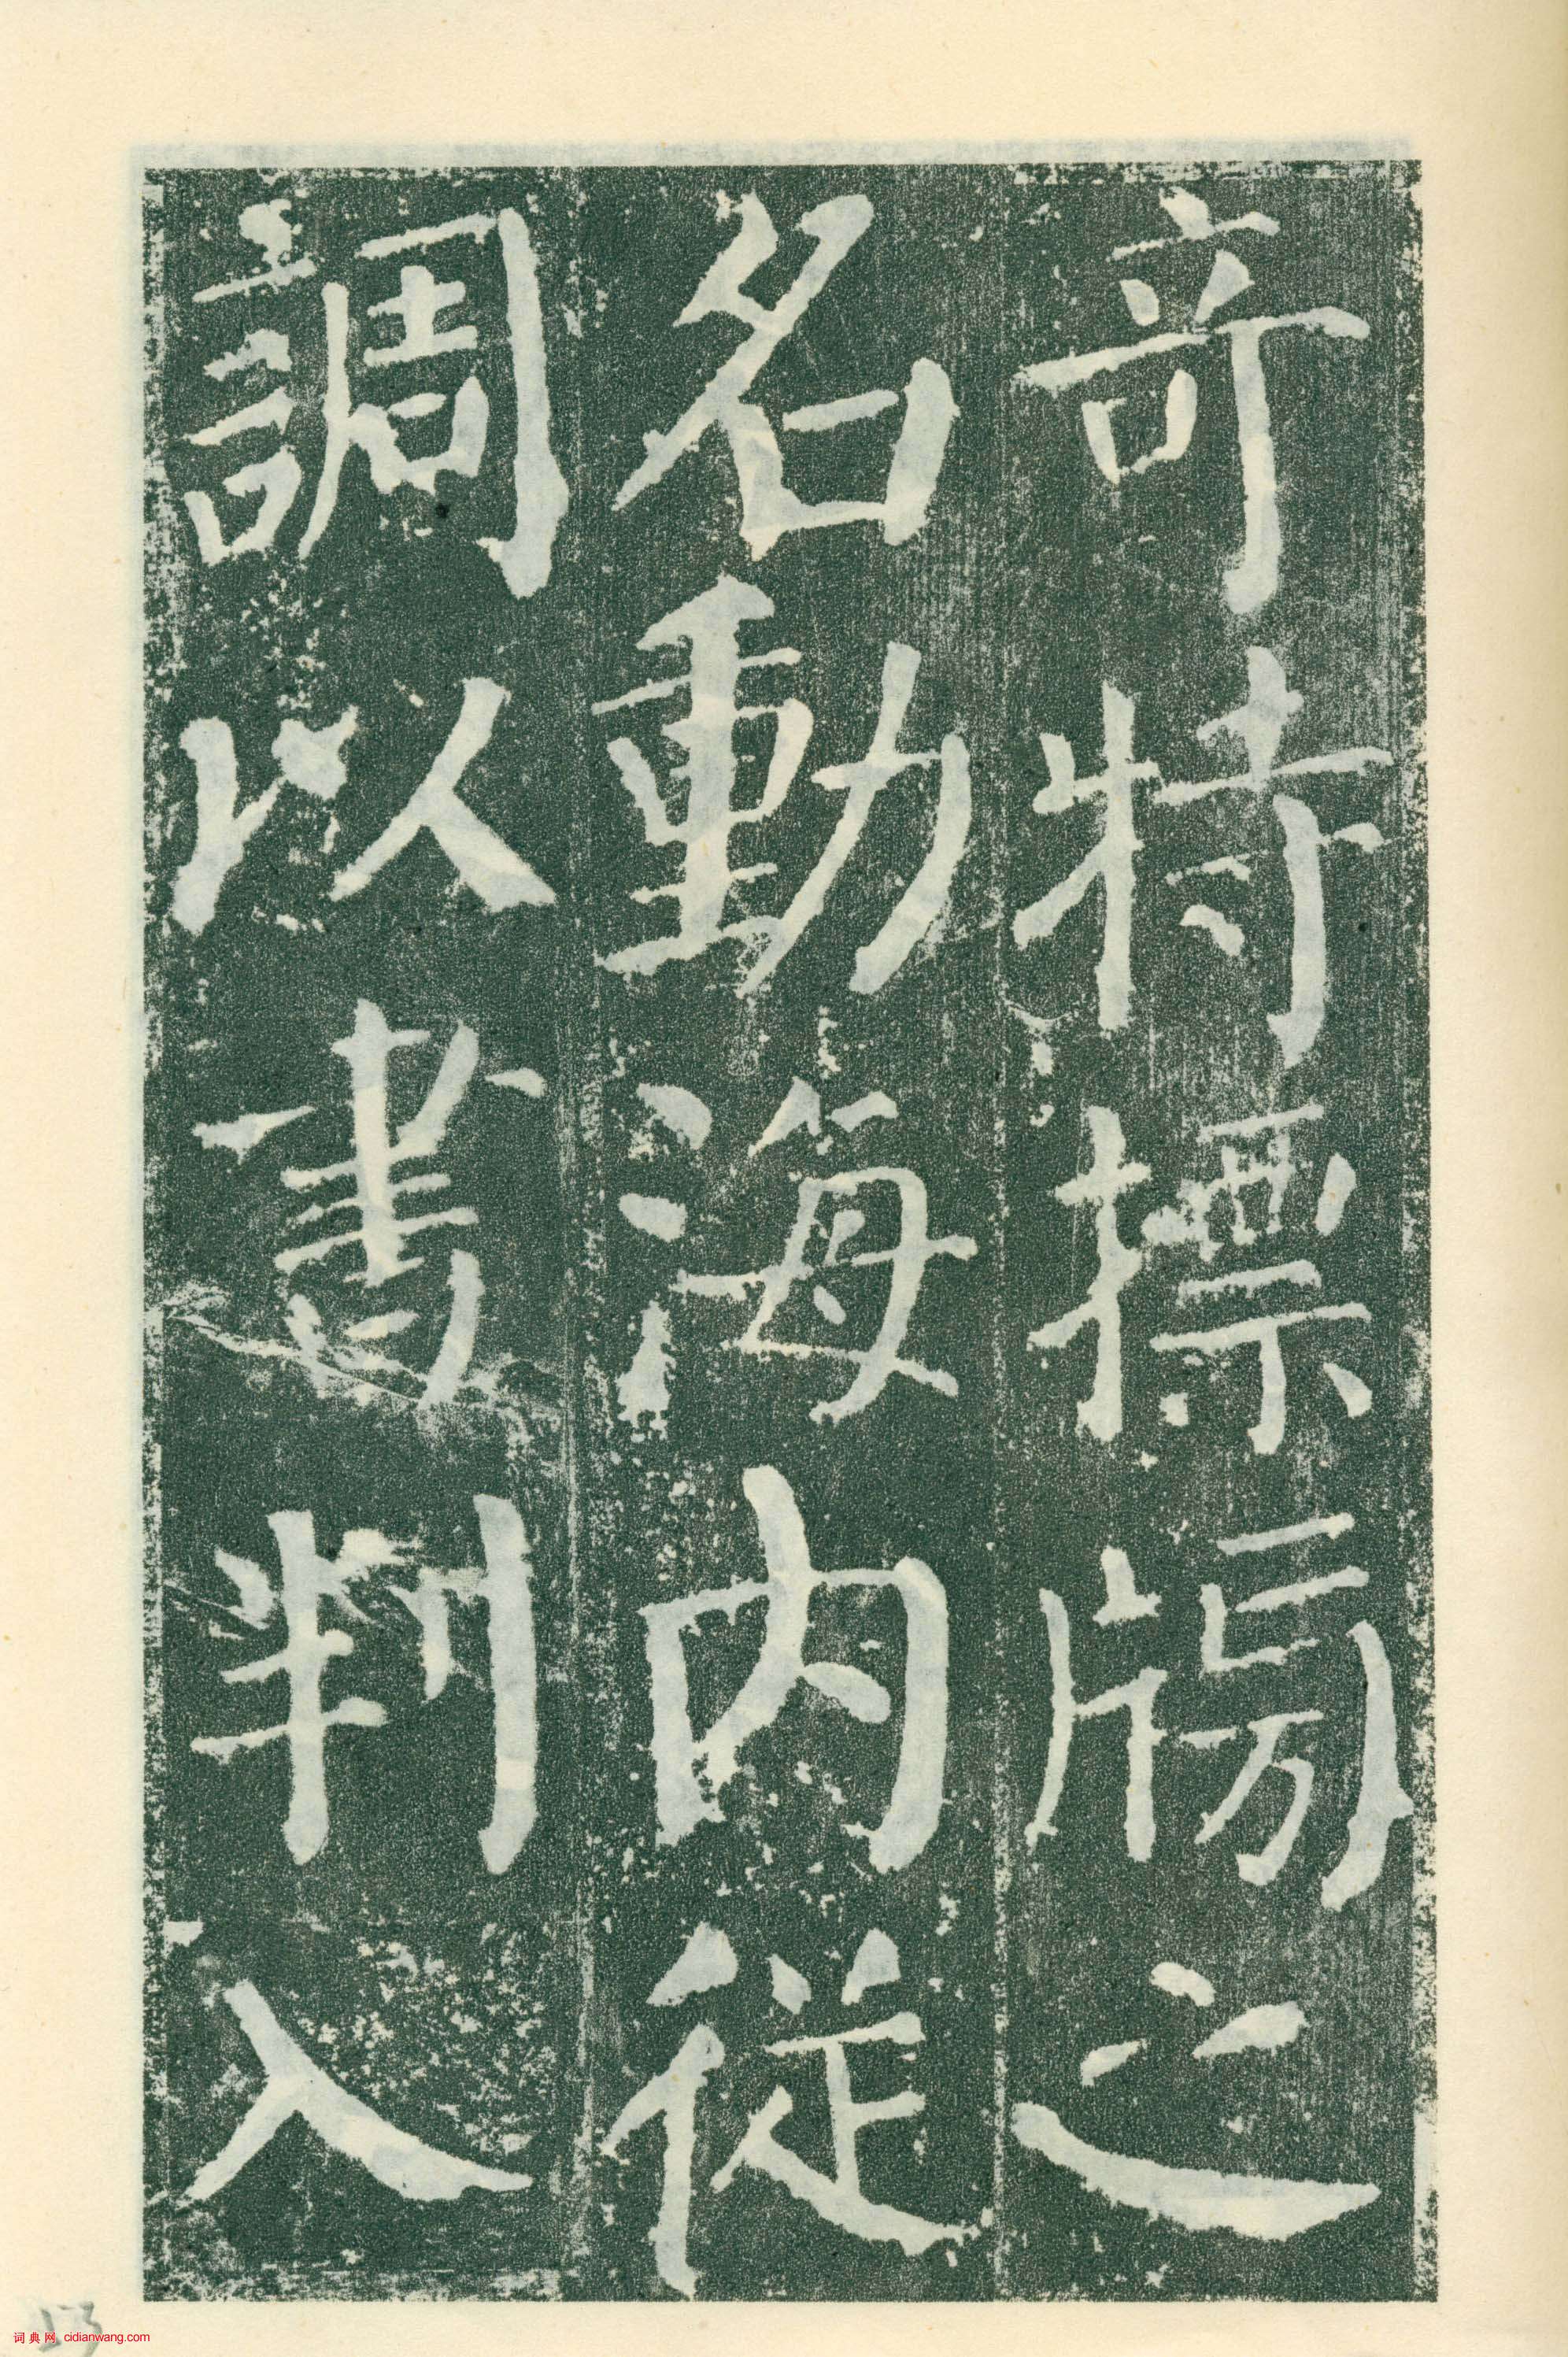 奇特標牓之
名動海內從
調以書判入
13
词典网 cidianwang.com